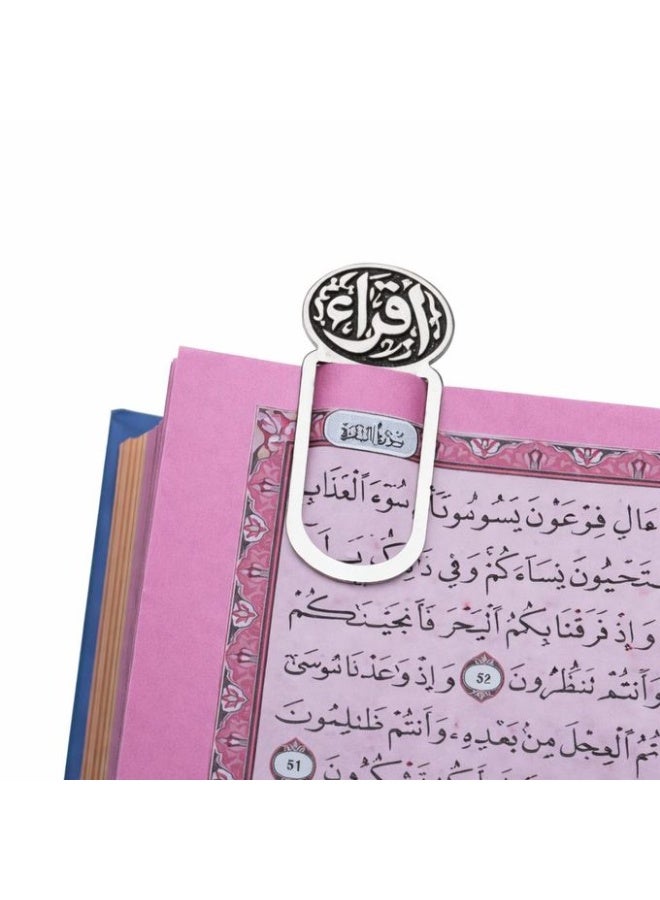 اقراء
سورة البقرة
ءَالِ فِرْعَوْنَ سُوٓءَ ٱلْعَذَابِ
نِسَآءَكُمْ وَفِي
وَإِذْ فَرَقْنَا بِكُمُ ٱلْبَحْرَ فَأَنجَيْنَٰكُمْ
وَأَنتُمْ تَنظُرُونَ 52 وَإِذْ وَٰعَدْنَا مُوسَىٰ
ٱلْعِجْلَ مِنۢ بَعْدِهِۦ وَأَنتُمْ ظَٰلِمُونَ
51